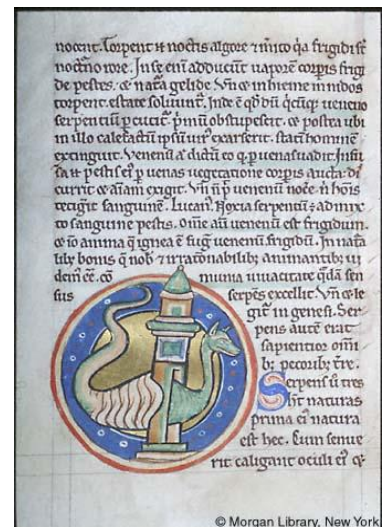 nocent. Torpent & noctis algore & in ico q̇a frigidi st̄
nocturno rore. In se eni adducūt uaporē corpis frigi
de pestes. & nata gelide. Vn̄ & in hieme in nodos
torpent. estate soluunt̄. Inde ē qd dū qcūq; ueneno
serpentiū pcutit̄. pmū obstupescit. & postea ubi
in illo calefactū ipsū uir exarserit. statī hominē
extinguit. Venenū aū dictū eo q p uenas uadit. Infu
sa & pestis ei p uenas uegetatione corpis aucta. di
currit & aīam exigit. Vn̄ n̄ p uenenū noce n̄ hōis
tetigit sanguinē. Lucan. Noxia serpentū ē admixto
to sanguine pestis. Om̄e aū uenenū est frigidum.
& iō anima q ignea ē fugit uenenū frigidū. In natu
lib; bonis q nob & irrationabilib; animantib; ui
dem eē. cō muni uiuacitate qdā sen
sus serpēs excellit. Vn̄ & le
git in genesi. Ser
pens autē erat
sapientior om̄i
b; pecorib; tr̄e.
Serpens ū tres
ht naturas
prima ei natura
est hec. Cum senue
rit caligant oculi ei &
© Morgan Library, New York